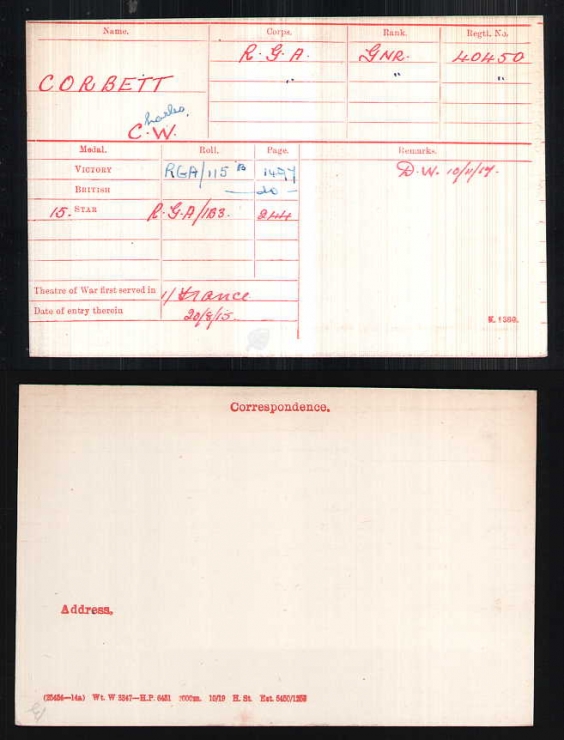 Name. Corps. Rank. Regtl. No.
R.G.A. GNR. 40450
CORBETT " " "
Charles.
C.W.
Medal. Roll. Page. Remarks.
VICTORY RGA/115 B D.W. 10/11/17.
BRITISH — do —
15. STAR R.G.A/1B3. 244
Theatre of War first served in 1/ France
Date of entry therein 20/8/15.
K. 1380.
Correspondence.
Address.
Wt. W 3347—H.P. 10/19 H. St.